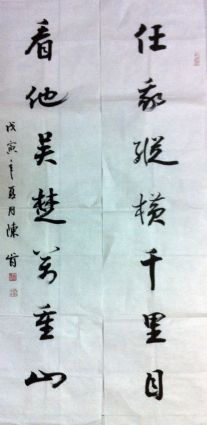 任我縱橫千里目
看他吴楚萬重山
戊寅年夏月陳